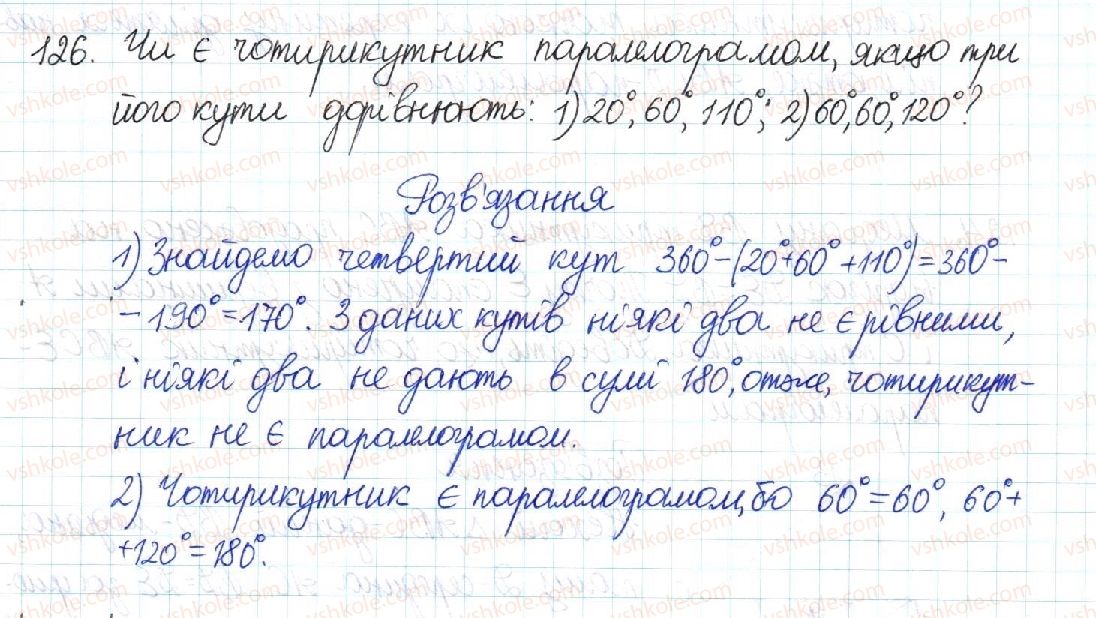 126. Чи є чотирикутник паралелограмом, якщо три
його кути дорівнюють: 1) 20°, 60°, 110°; 2) 60°, 60°, 120°?
Розв'язання
1) Знайдемо четвертий кут 360°-(20°+60°+110°)=360°-
-190°=170°. З даних кутів ніякі два не є рівними,
і ніякі два не дають в сумі 180°, отже, чотирикут-
ник не є паралелограмом.
2) Чотирикутник є паралелограмом, бо 60°=60°, 60°+
+120°=180°.